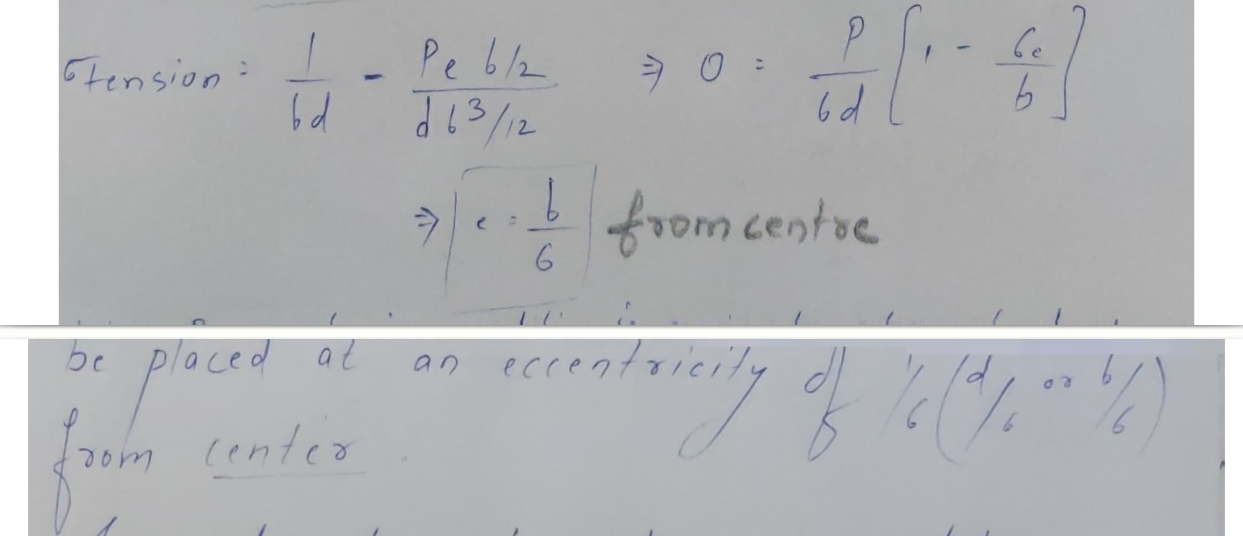 σtension = 1/bd - Pe b/2 / d b³/12 ⇒ 0 = P/bd [1 - 6e/b]
⇒ e = b/6 from centre
be placed at an eccentricity of 1/6 (d/6 or b/6)
from center.